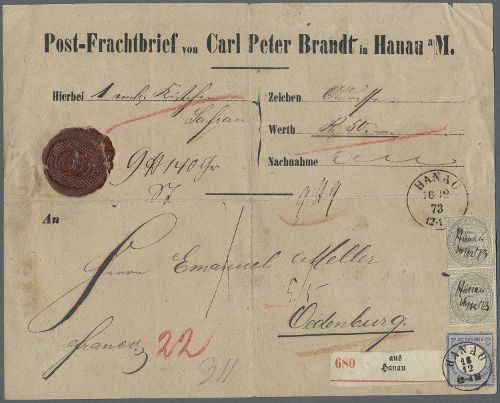 Post-Frachtbrief von Carl Peter Brandt in Hanau a/M.
Hierbei 1 emb. Kistchen
Safran
Zeichen Adresse
Werth R. 50.
Nachnahme
9 ℔ 140 Gr
HANAU
16 12
73
An
Herrn Emanuel Müller
5/5
Oedenburg.
franco
22
311
680 aus Hanau
Hanau
16/12 73
Hanau
16/12 73
HANAU
16
12